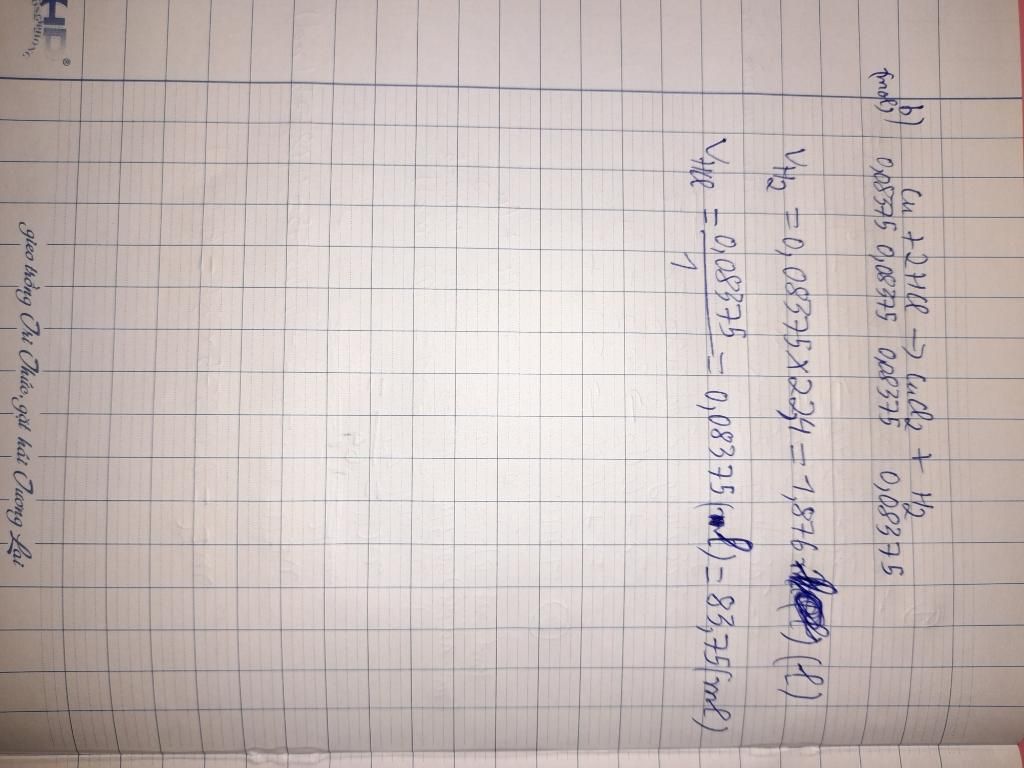 b) Cu + 2HCl → CuCl2 + H2
(mol) 0,08375 0,08375 0,08375 0,08375
VH2 = 0,08375 x 22,4 = 1,876 (l)
VHCl = 0,08375/1 = 0,08375 (l) = 83,75 (ml)
HD®
gieo những Tri Thức, gặt hái Tương Lai